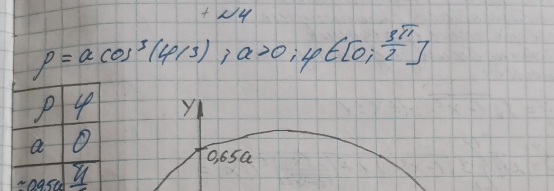 + №4
ρ = a cos³(φ/3) ; a>0 ; φ ∈ [0; 3π/2]
ρ φ
a 0
≈0,95a π
Y
0,65a